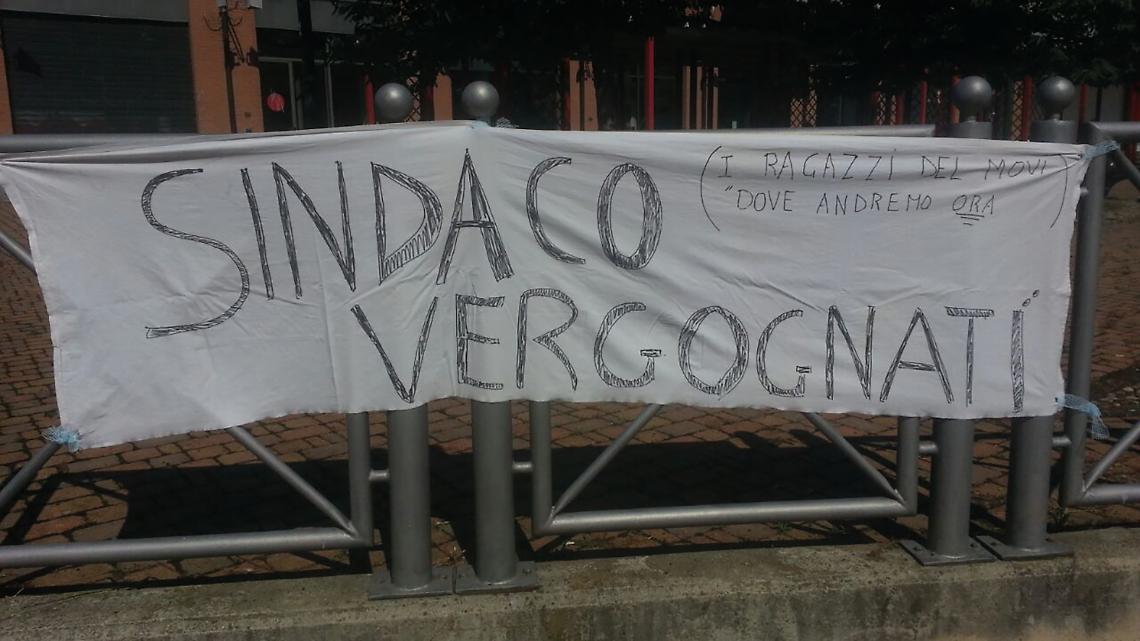 SINDACO
(I RAGAZZI DEL MOVI)
("DOVE ANDREMO ORA)
VERGOGNATI